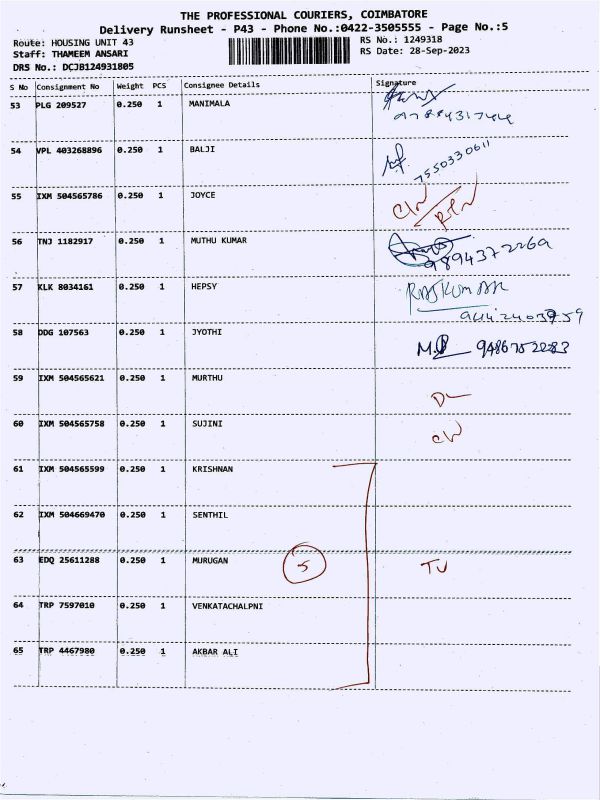 THE PROFESSIONAL COURIERS, COIMBATORE
Delivery Runsheet - P43 - Phone No.:0422-3505555 - Page No.:5
Route: HOUSING UNIT 43
RS No.: 1249318
Staff: THAMEEM ANSARI
RS Date: 28-Sep-2023
DRS No.: DCJB124931805
S No Consignment No Weight PCS Consignee Details Signature
53 PLG 209527 0.250 1 MANIMALA
54 VPL 403268896 0.250 1 BALJI
7550330611
55 IXM 504565786 0.250 1 JOYCE
56 TNJ 1182917 0.250 1 MUTHU KUMAR
9894372269
57 KLK 8034161 0.250 1 HEPSY RAJKUMAR
58 DDG 107563 0.250 1 JYOTHI
59 IXM 504565621 0.250 1 MURTHU
DL
60 IXM 504565758 0.250 1 SUJINI
61 IXM 504565599 0.250 1 KRISHNAN
62 IXM 504669470 0.250 1 SENTHIL
63 EDQ 25611288 0.250 1 MURUGAN 5
64 TRP 7597010 0.250 1 VENKATACHALPNI
65 TRP 4467980 0.250 1 AKBAR ALI